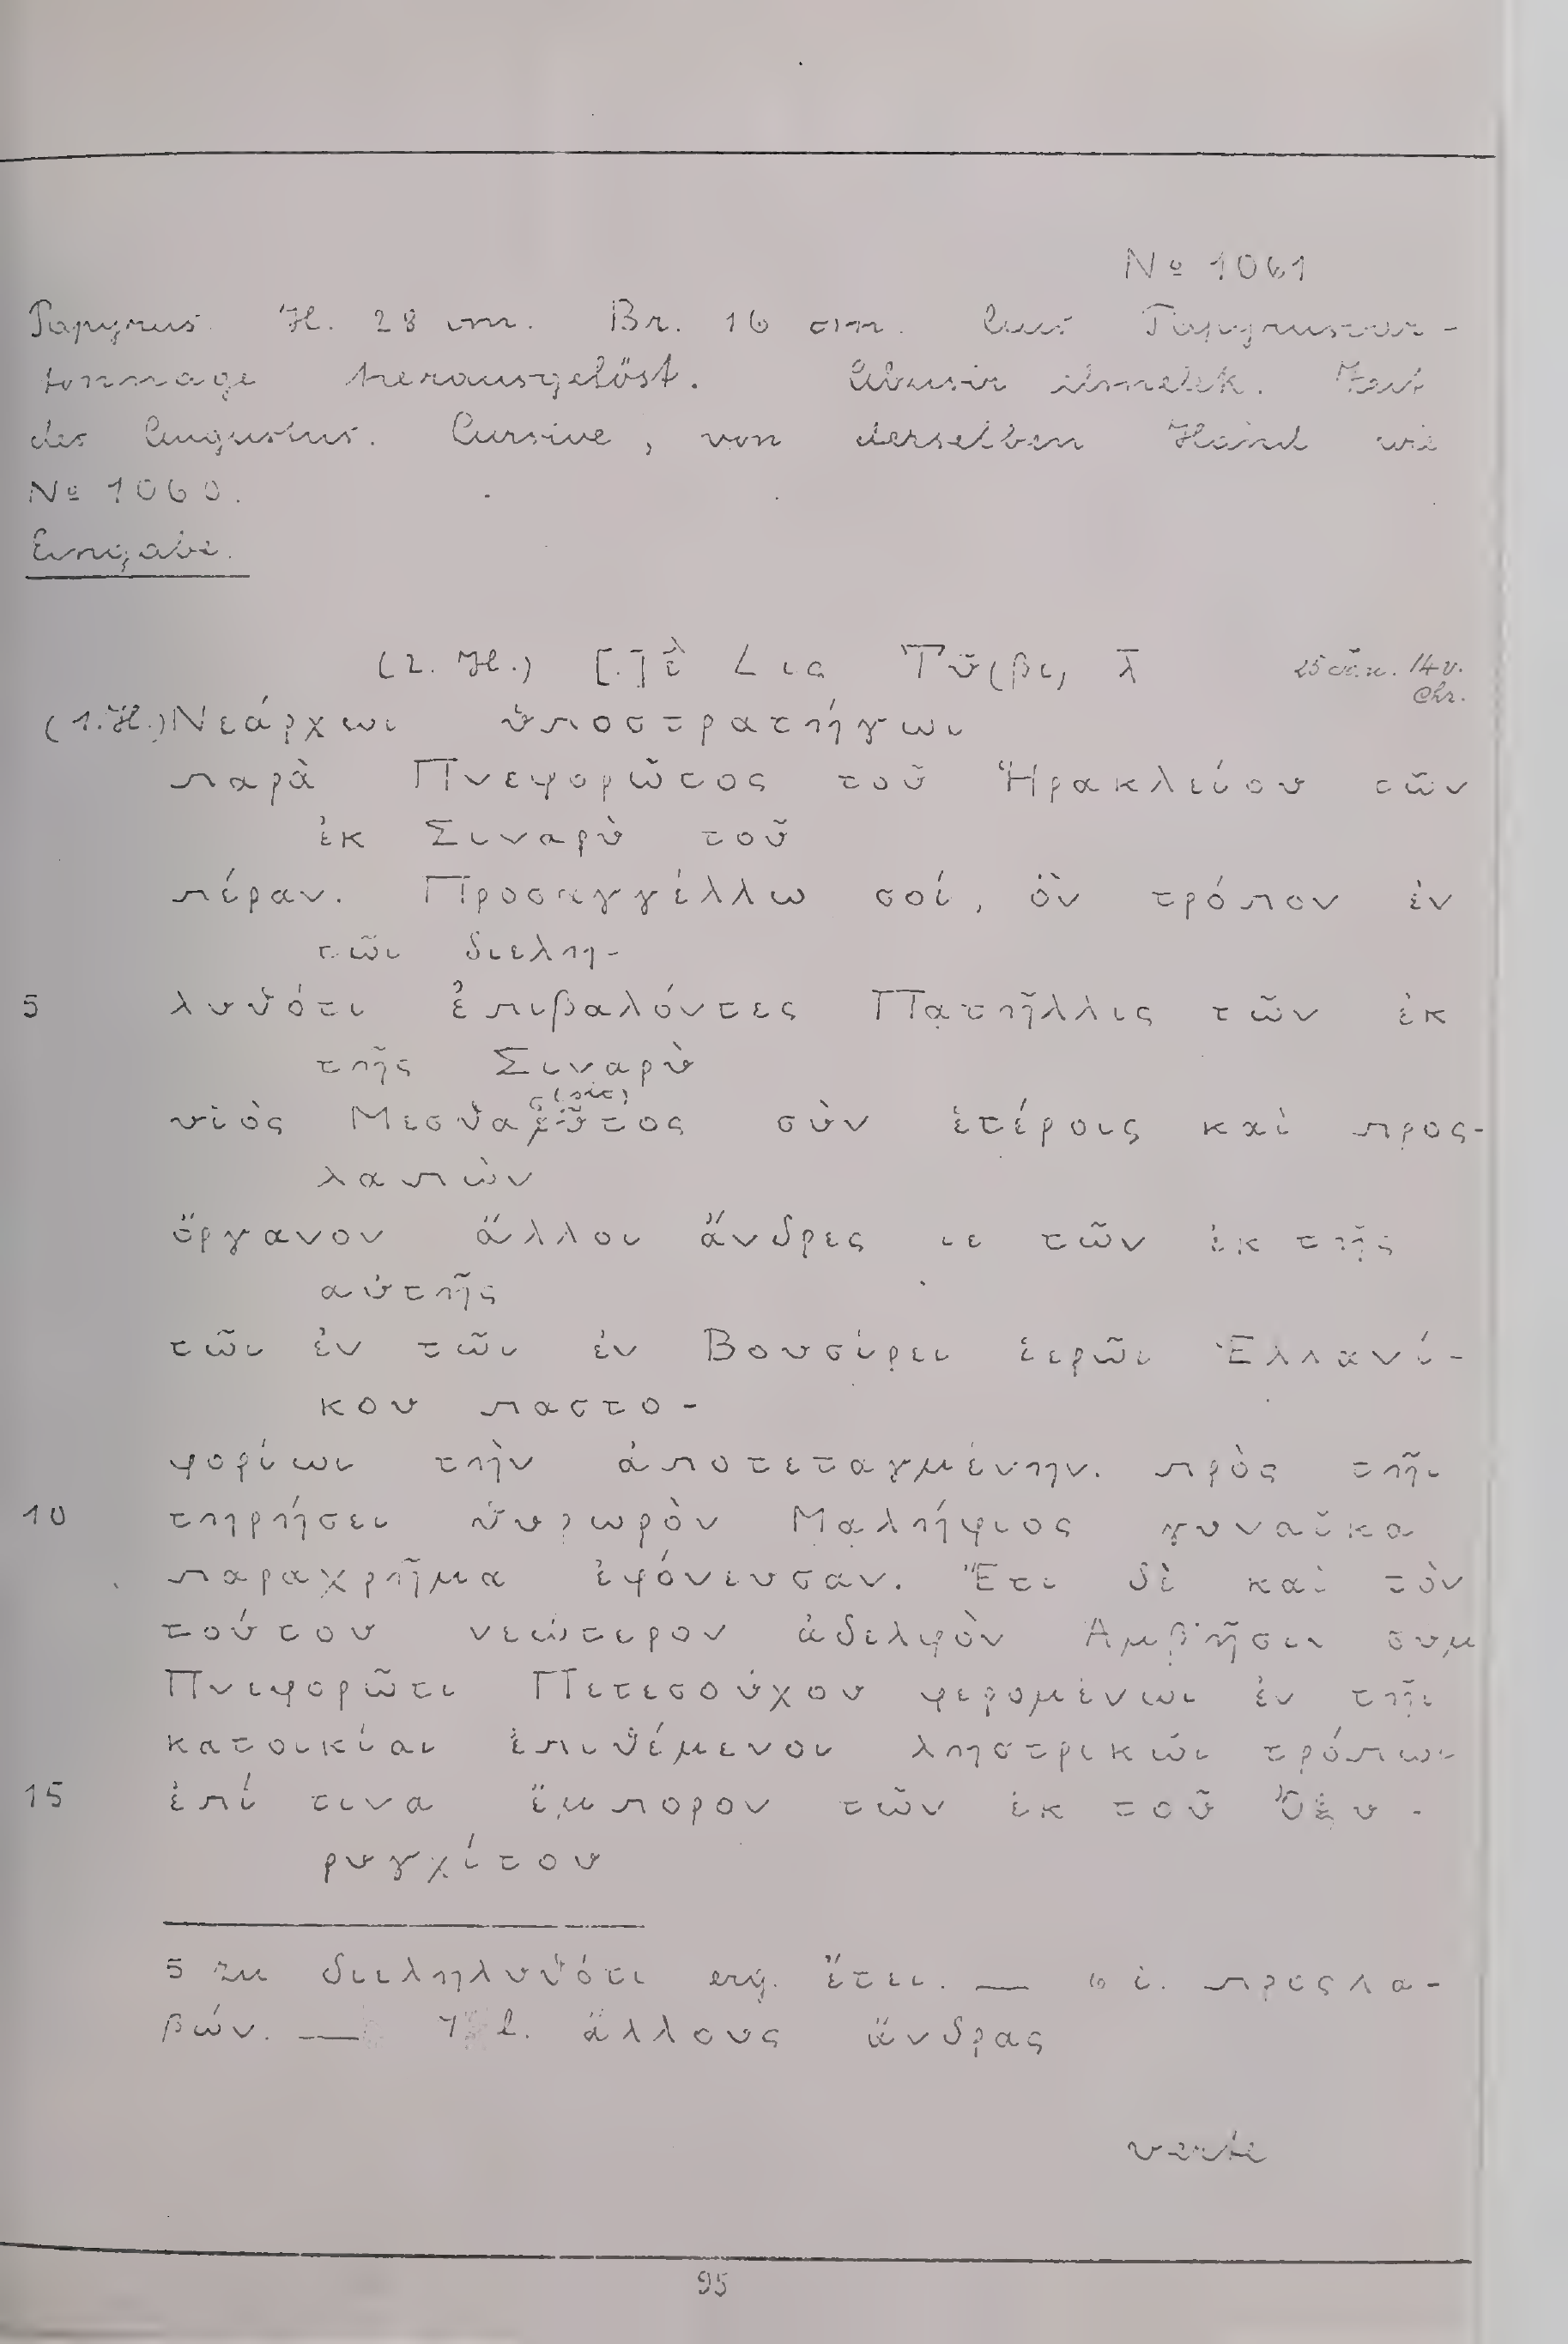 Nº 1061
Papyrus. H. 28 cm. Br. 16 cm. Aus Papyruscar-
tonnage herausgelöst. Abusir elmelek. Zeit
des Augustus. Cursive, von derselben Hand wie
Nº 1060.
Eingabe.
(2. H.) [.]ὲ L ις Τῦ(βι) λ̄ 25 Jan. 14 v.
Chr.
(1. H.) Νεάρχωι ὑποστρατήγωι
παρὰ Πνεφορῶτος τοῦ Ἡρακλείου τῶν
ἐκ Σιναρὺ τοῦ
πέραν. Προσαγγέλλω σοί, ὃν τρόπον ἐν
τῶι διελη-
5 λυθότι ἐπιβαλόντες Πατῆλλις τῶν ἐκ
τῆς Σιναρὺ
(sic)
υἱὸς σὺν ἑτέροις καὶ προς-
λαπὼν
ὄργανον ἄλλοι ἄνδρες ιε τῶν ἐκ τῆς
αὐτῆς
τῶι ἐν τῶι ἐν Βουσίρει ἱερῶι Ἑλλανί-
κου παστο-
φορίωι τὴν ἀποτεταγμένην. πρὸς τῆι
10 τηρήσει θυρωρὸν Μαλήφιος γυναῖκα
παραχρῆμα ἐφόνευσαν. Ἔτι δὲ καὶ τὸν
τούτου νεώτερον ἀδελφὸν Ἀμβῆσιν συμ
Πνεφορῶτι Πετεσούχου φερομένωι ἐν τῆι
κατοικίαι ἐπιθέμενοι ληστρικῶι τρόπωι
15 ἐπί τινα ἔμπορον τῶν ἐκ τοῦ Ὀξυ-
ρυγχίτου
5 zu διεληλυθότι erg. ἔτει. — 6 l. προςλα-
βών. — 7 l. ἄλλους ἄνδρας
verte
95